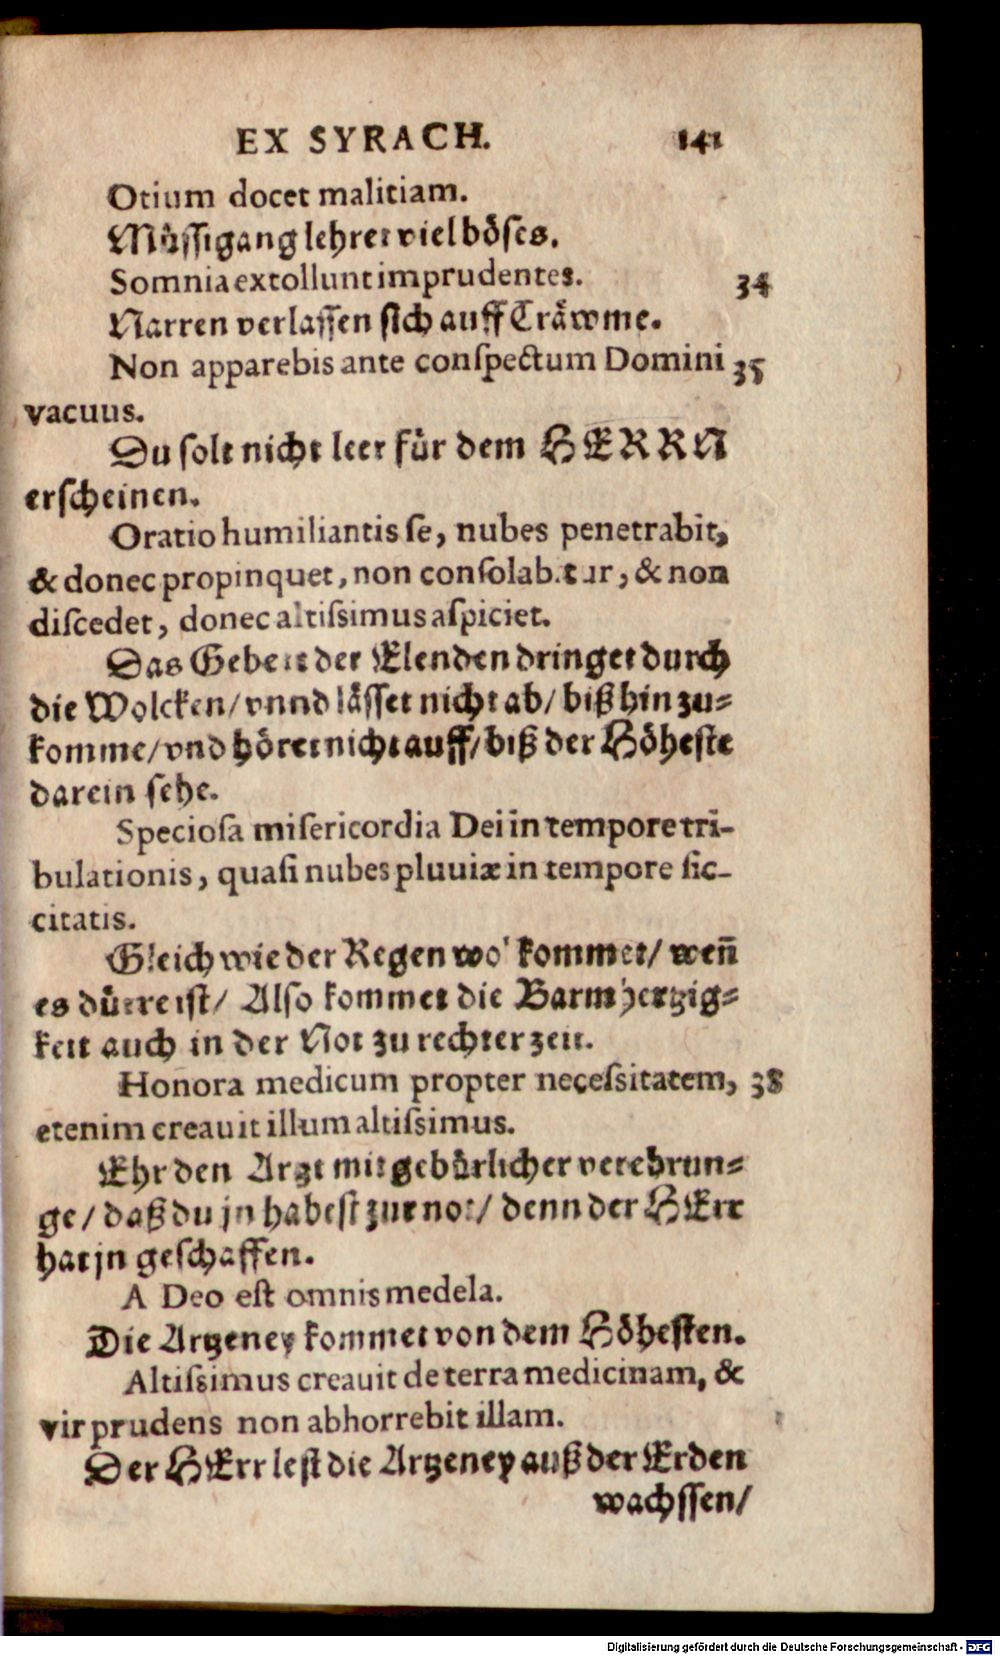 EX SYRACH. 141
Otium docet malitiam.
Müssigang lehret viel böses.
Somnia extollunt imprudentes. 34
Narren verlassen sich auff Träwme.
Non apparebis ante conſpectum Domini 35
vacuus.
Du ſolt nicht leer für dem HERRN
erſcheinen.
Oratio humiliantis ſe, nubes penetrabit,
& donec propinquet, non conſolabitur, & non
diſcedet, donec altiſsimus aſpiciet.
Das Gebett der Elenden dringet durch
die Wolcken/ vnnd läſſet nicht ab/ biß hin zu-
komme/ vnd höret nicht auff/ biß der Höheſte
darein ſehe.
Specioſa miſericordia Dei in tempore tri-
bulationis, quaſi nubes pluviæ in tempore ſic-
citatis.
Gleich wie der Regen wol kommet/ weñ
es dürre iſt/ Alſo kommet die Barmhertzig-
keit auch in der Not zu rechter zeit.
Honora medicum propter neceſsitatem, 38
etenim creavit illum altiſsimus.
Ehr den Arzt mit gebürlicher verehrun-
ge/ daß du jn habeſt zur not/ denn der HErr
hat jn geſchaffen.
A Deo eſt omnis medela.
Die Artzeney kommet von dem Höheſten.
Altiſsimus creavit de terra medicinam, &
vir prudens non abhorrebit illam.
Der HErr leſt die Artzeney auß der Erden
wachſſen/
Digitalisierung gefördert durch die Deutsche Forschungsgemeinschaft - DFG